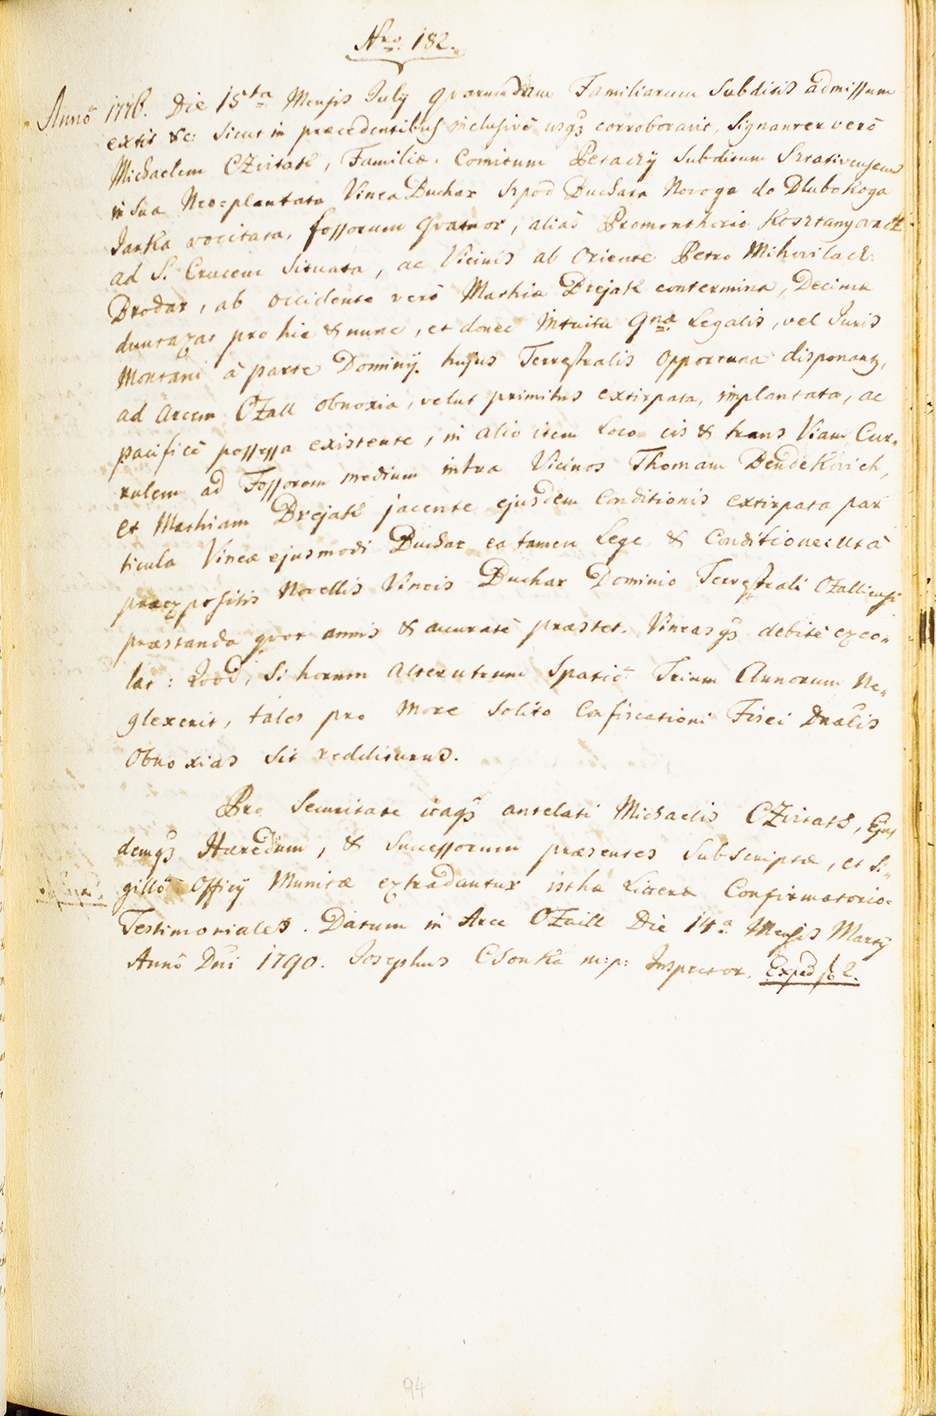 Nro. 182.
Annô 1778. Die 15ta Mensis July quarumdam Familiarum Subditis admissum
extit &c: sicut in praecedentibus inclusivè usq3 corroboravit, Signanter verò
Michaelem CZvitak, Familiae Comitum Petachy Subditum
in sua Neo-plantata Vinea Buchar Szpod Buchara Novoga do Dlubokoga
Jarka vocitata, fossorum quatuor, aliàs Promonthorio Kosztanyavacz
ad S. Crucem situata, ac Vicinis ab Oriente Petro Mihovilach
Brodar, ab occidente verò Mathia Drejak contermina, Decima
duntaxat pro hic & nunc, et donec intuitu qnae Legalis, vel Juris
Montani à parte Dominij hujus Terrestralis opportuna disponant,
ad Arcem OZall obnoxia, velut primitus extirpata, implantata, ac
pacificè possessa existente, in alio item Loco cis & trans Viam Cur-
rulem ad Fossorem medium intra Vicinos Thomam Bendekovich,
et Mathiam Drejak jacente ejusdem Conditionis extirpata par
ticula Vineae ejusmodi Buchar ea tamen Lege & Conditione: ut à
praeexpositis Novellis Vineis Buchar Dominio Terrestrali OZalliensi
praestanda quot annis & accuratè praestet. Vineasq3 debitè exco-
lat: Quod, si horum alterutrum Spatiô Trium Annorum Ne-
glexerit, tales pro More Solito Confiscationi Fisci Dnalis
Obnoxias sit redditurus.
Pro Securitate itaq3 antelati Michaelis CZvitak, Ejus
demq3 Haeredum, & Successorum praesentes Subscriptae, et Si-
gillô Officij Munitae extradantur isthae Literae Confirmatorio-
Testimoniales. Datum in Arce OZaill Die 14a Mensis Martij
Annô Dni 1790. Josephus CSonka m:p: Inspector. Exped f 2.
94